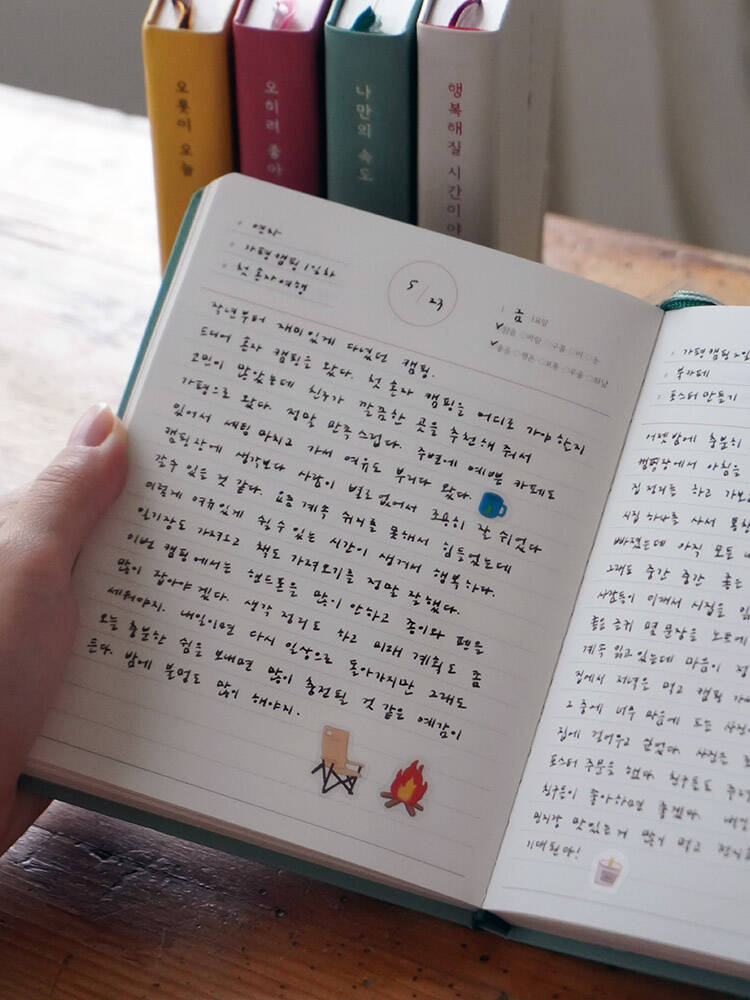 오롯이 오늘
오히려 좋아
나만의 속도
행복해질 시간이야
연차
가평캠핑 1일차
첫 혼자여행
5/23
금 요일
맑음 바람 구름 비 눈
좋음 평온 보통 우울 화남
작년부터 재미있게 다녔던 캠핑.
드디어 혼자 캠핑을 왔다. 첫 혼자 캠핑을 어디로 가야 할지
고민이 많았는데 친구가 깔끔한 곳을 추천해 줘서
가평으로 왔다. 정말 만족스럽다. 주변에 예쁜 카페도
있어서 세팅 마치고 가서 여유도 부리다 왔다.
캠핑장에 생각보다 사람이 별로 없어서 조용히 잘 쉬었다
갈 수 있을 것 같다. 요즘 계속 쉬지를 못해서 힘들었는데
이렇게 여유있게 쉴 수 있는 시간이 생겨서 행복하다.
일기장도 가져오고 책도 가져오기를 정말 잘했다.
이번 캠핑에서는 핸드폰을 많이 안하고 종이와 펜을
많이 잡아야겠다. 생각 정리도 하고 미래 계획도 좀
세워야지. 내일이면 다시 일상으로 돌아가지만 그래도
오늘 충분한 쉼을 보내면 많이 충전될 것 같은 예감이
든다. 밤에 불멍도 많이 해야지.
가평캠핑 2일
북카페
포스터 만들기
어젯밤에 충분히
캠핑장에서 아침을
집 정리를 하고
시집 하나를 사서
빠졌는데 아직 모든
그래도 중간 중간 좋은
사람들이 이래서 시집을
좋은 글귀 몇 문장을 노트에
계속 읽고있는데 마음이
집에서 저녁을 먹고 캠핑
그 중에 너무 마음에 드는 사진
집에 걸어두고 싶었다. 사진은
포스터 주문을 했다. 친구들도
친구들이 좋아하면 좋겠다.
맛있는거 많이 먹고
기대된다!